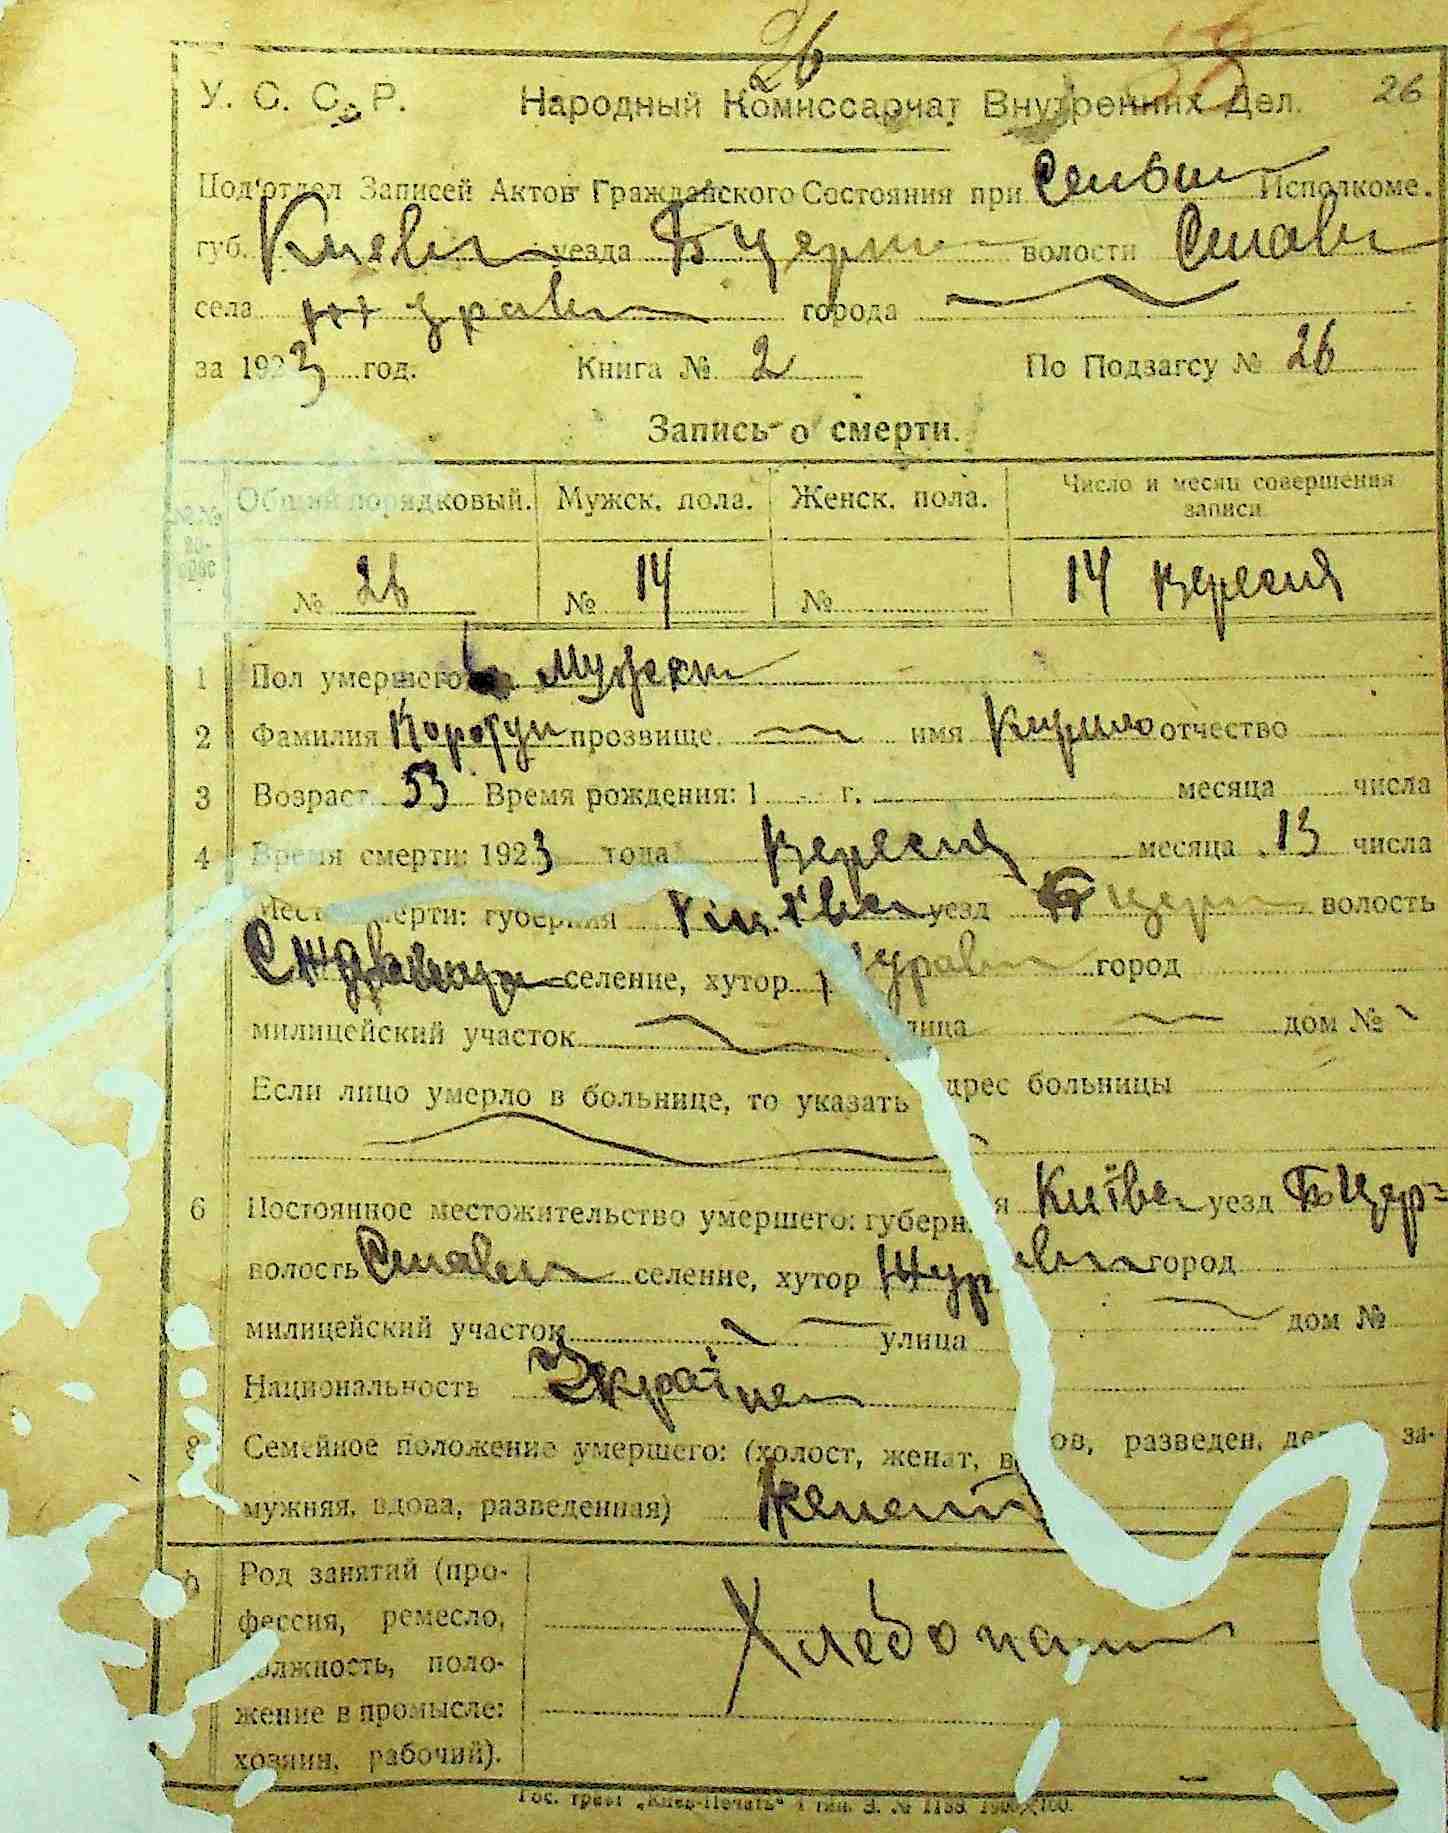 26
У. С. С. Р. Народный Комиссариат Внутренних Дел. 26
Под'отдел Записей Актов Гражданского Состояния при Сельск Исполкоме.
губ. Киевск уезда Б Церк волости Ставк
села Журавк города
за 1923 год. Книга № 2 По Подзагсу № 26
Запись о смерти.
Общий порядковый. Мужск. пола. Женск. пола. Число и месяц совершения
записи
№ 26 № 14 № 14 Вересня
1 Пол умершего Мужск
2 Фамилия прозвище имя Кирило отчество
3 Возраст 53 Время рождения: 1 г. месяца числа
4 Время смерти: 1923 года Вересня месяца 13 числа
Место смерти: губерния уезд Б Церк волость
селение, хутор город
милицейский участок улица дом №
Если лицо умерло в больнице, то указать адрес больницы
6 Постоянное местожительство умершего: губерния Київс уезд Б Цер-
волость Ставк селение, хутор Журавк город
милицейский участок улица дом №
Национальность Україн
8 Семейное положение умершего: (холост, женат, вдов, разведен, за-
мужняя, вдова, разведенная) женат
Род занятий (про-
фессия, ремесло,
должность, поло-
жение в промысле:
хозяин, рабочий).
Хлебопаш
Гос. трест „Киев-Печать“